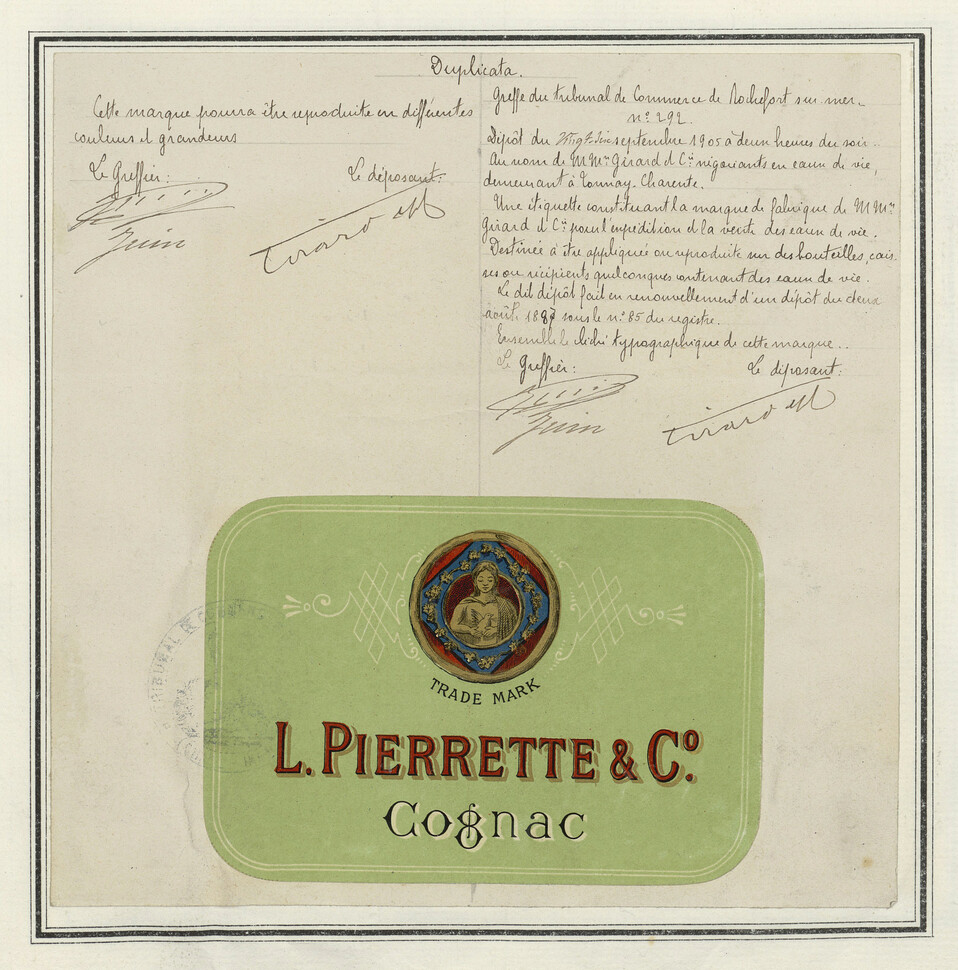 Duplicata.
Cette marque pourra être reproduite en différentes
couleurs et grandeurs
Le Greffier:
Le déposant:
Juin
Girard et C
Greffe du tribunal de Commerce de Rochefort sur mer.
n.º 292.
Dépôt du Vingt-six septembre 1905 à deux heures du soir.
Au nom de MMrs Girard et Cie négociants en eaux de vie,
demeurant à Tonnay-Charente.
Une étiquette constituant la marque de fabrique de MMrs
Girard et Cie pour l'expédition et la vente des eaux de vie.
Destinée à être appliquée ou reproduite sur des bouteilles, cais-
ses ou récipients quelconques contenant des eaux de vie.
Le dit dépôt fait en renouvellement d'un dépôt du deux
août 1887 sous le n.º 85 du registre.
Ensemble le cliché typographique de cette marque..
Le Greffier:
Le déposant:
Juin
Girard et C
TRIBUNAL DE COMMERCE
TRADE MARK
L. PIERRETTE & Cº.
Cognac